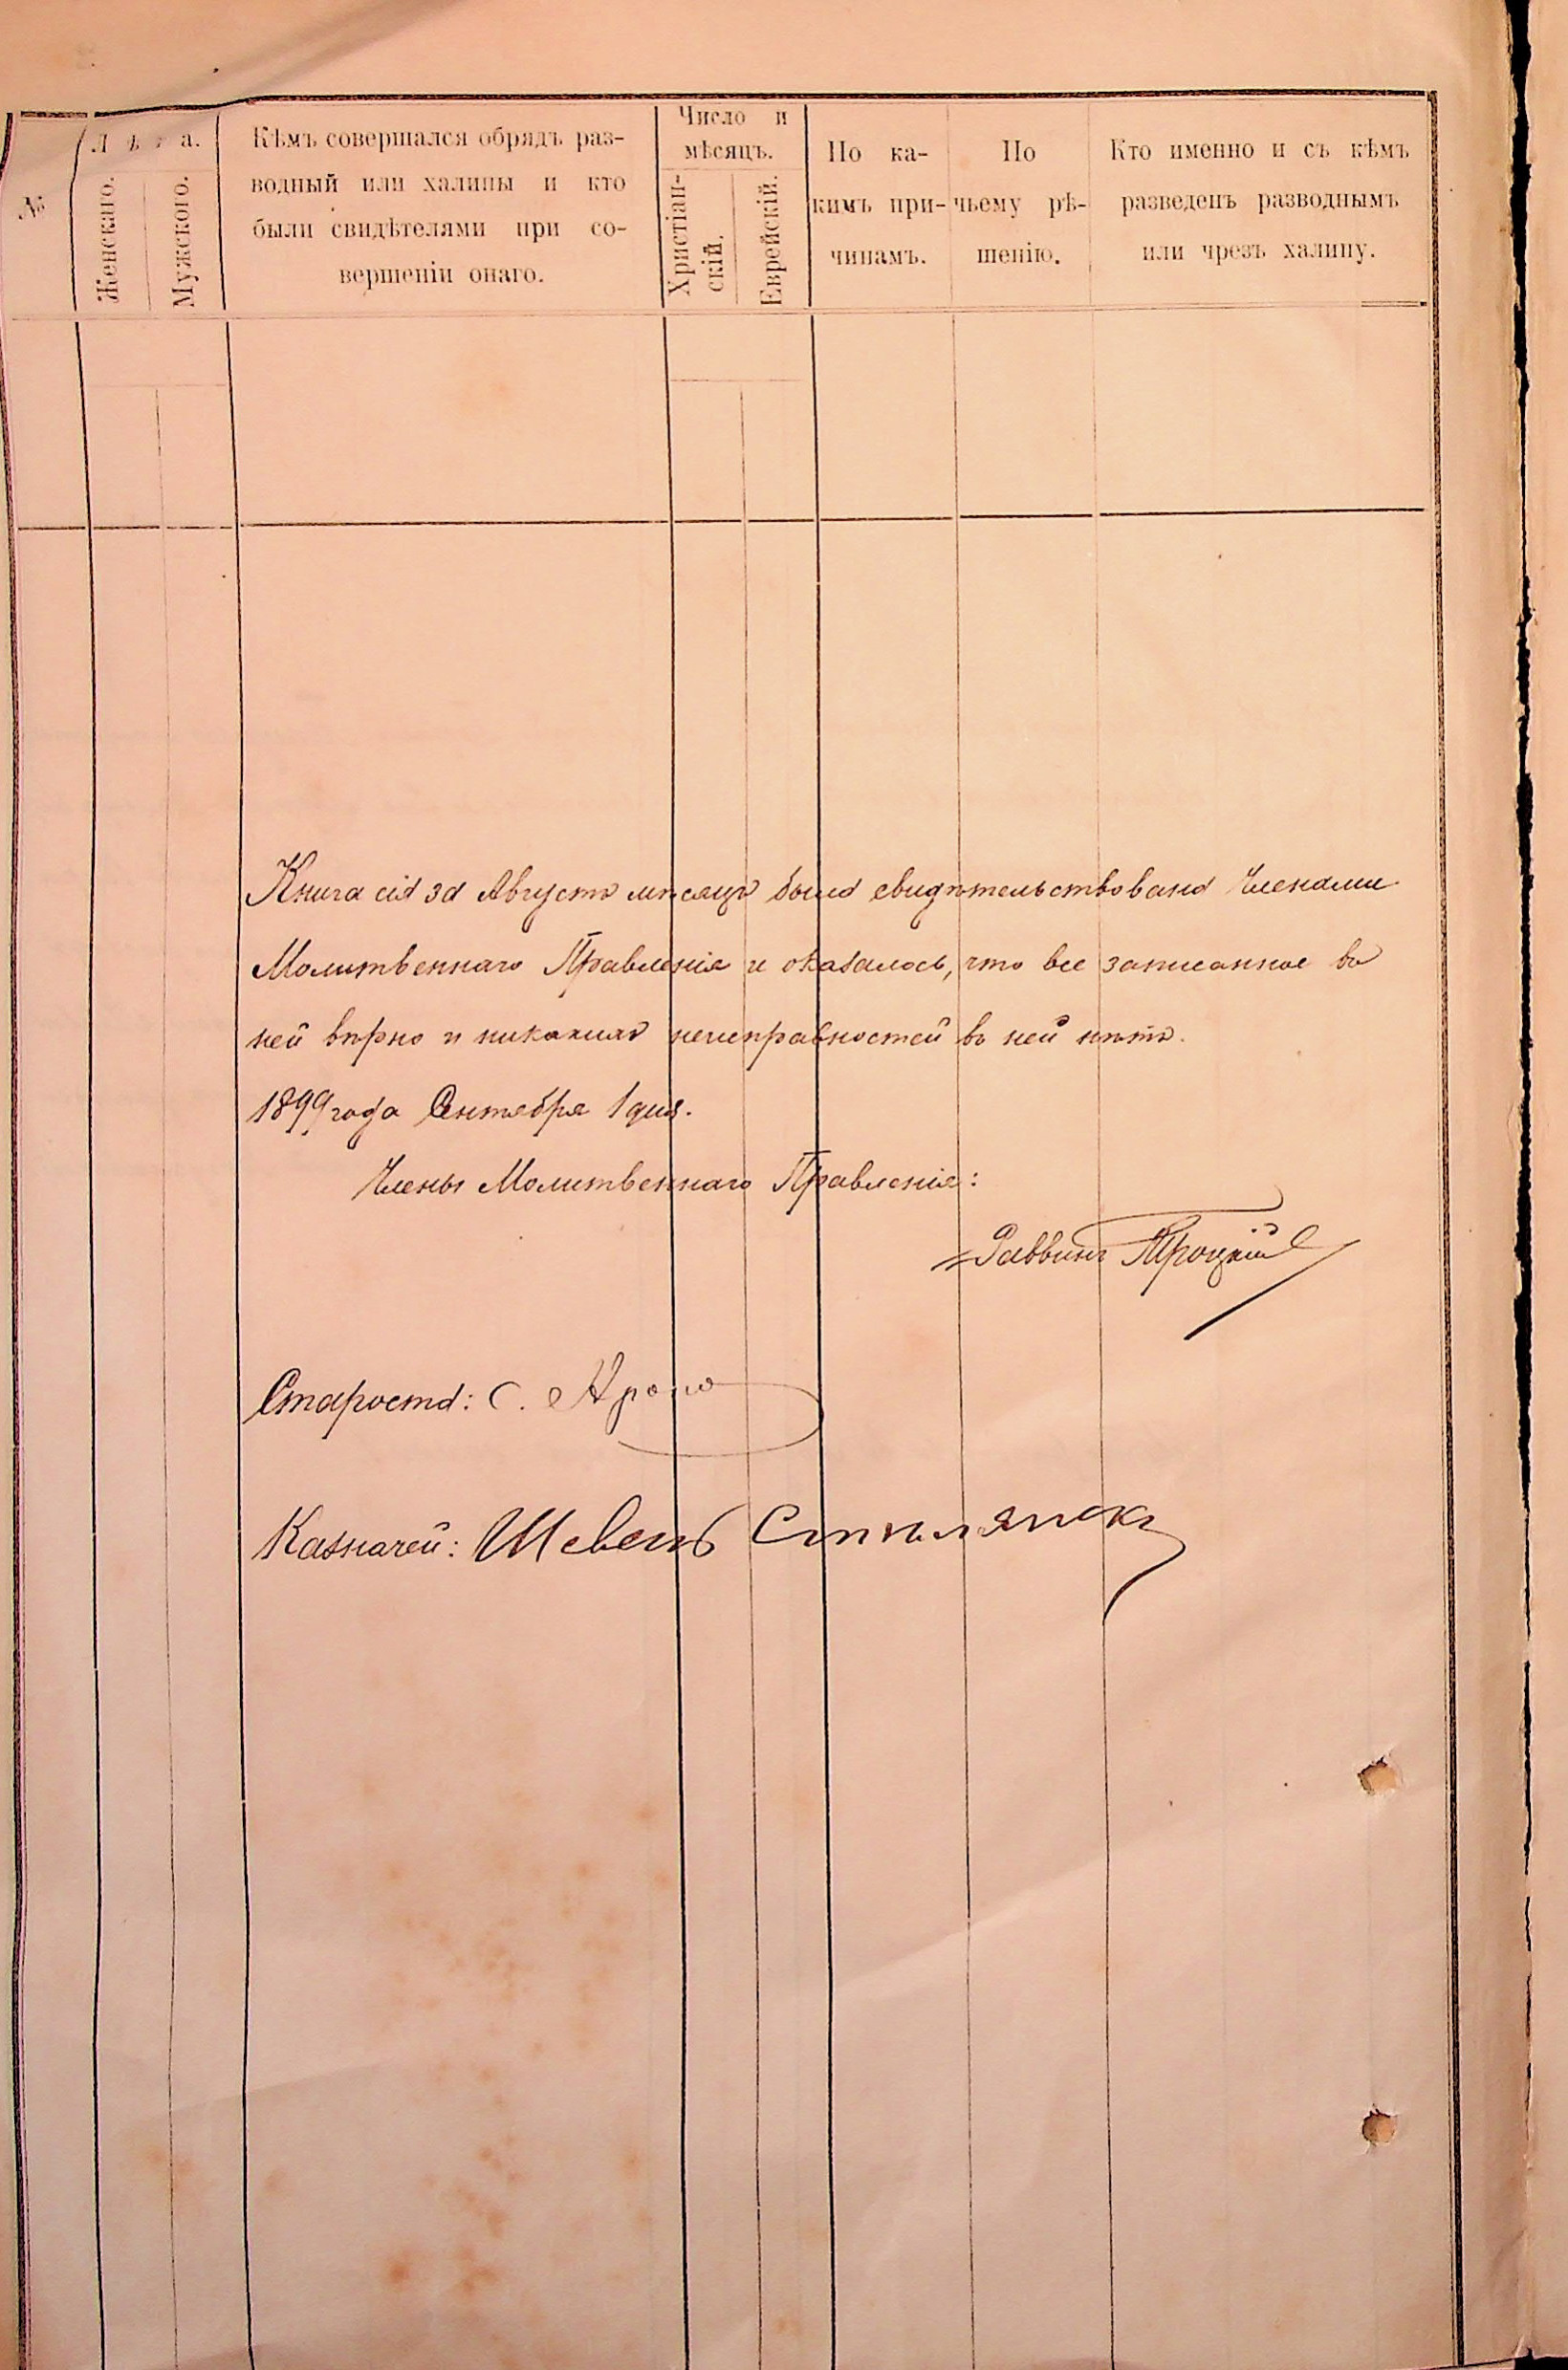 №
Лѣта.
Женскаго.
Мужского.
Кѣмъ совершался обрядъ раз-
водный или халицы и кто
были свидѣтелями при со-
вершеніи онаго.
Число и
мѣсяцъ.
Христіан-
скій.
Еврейскій.
По ка-
кимъ при-
чинамъ.
По
чьему рѣ-
шенію.
Кто именно и съ кѣмъ
разведенъ разводнымъ
или чрезъ халицу.
Книга сія за Августъ мѣсяцъ была свидѣтельствована Членами
Молитвеннаго Правленія и оказалось, что все записанное въ
ней вѣрно и никакихъ неисправностей въ ней нѣтъ.
1899 года Сентября 1 дня.
Члены Молитвеннаго Правленія:
Раввинъ Троцкій
Староста: С.
Казначей: